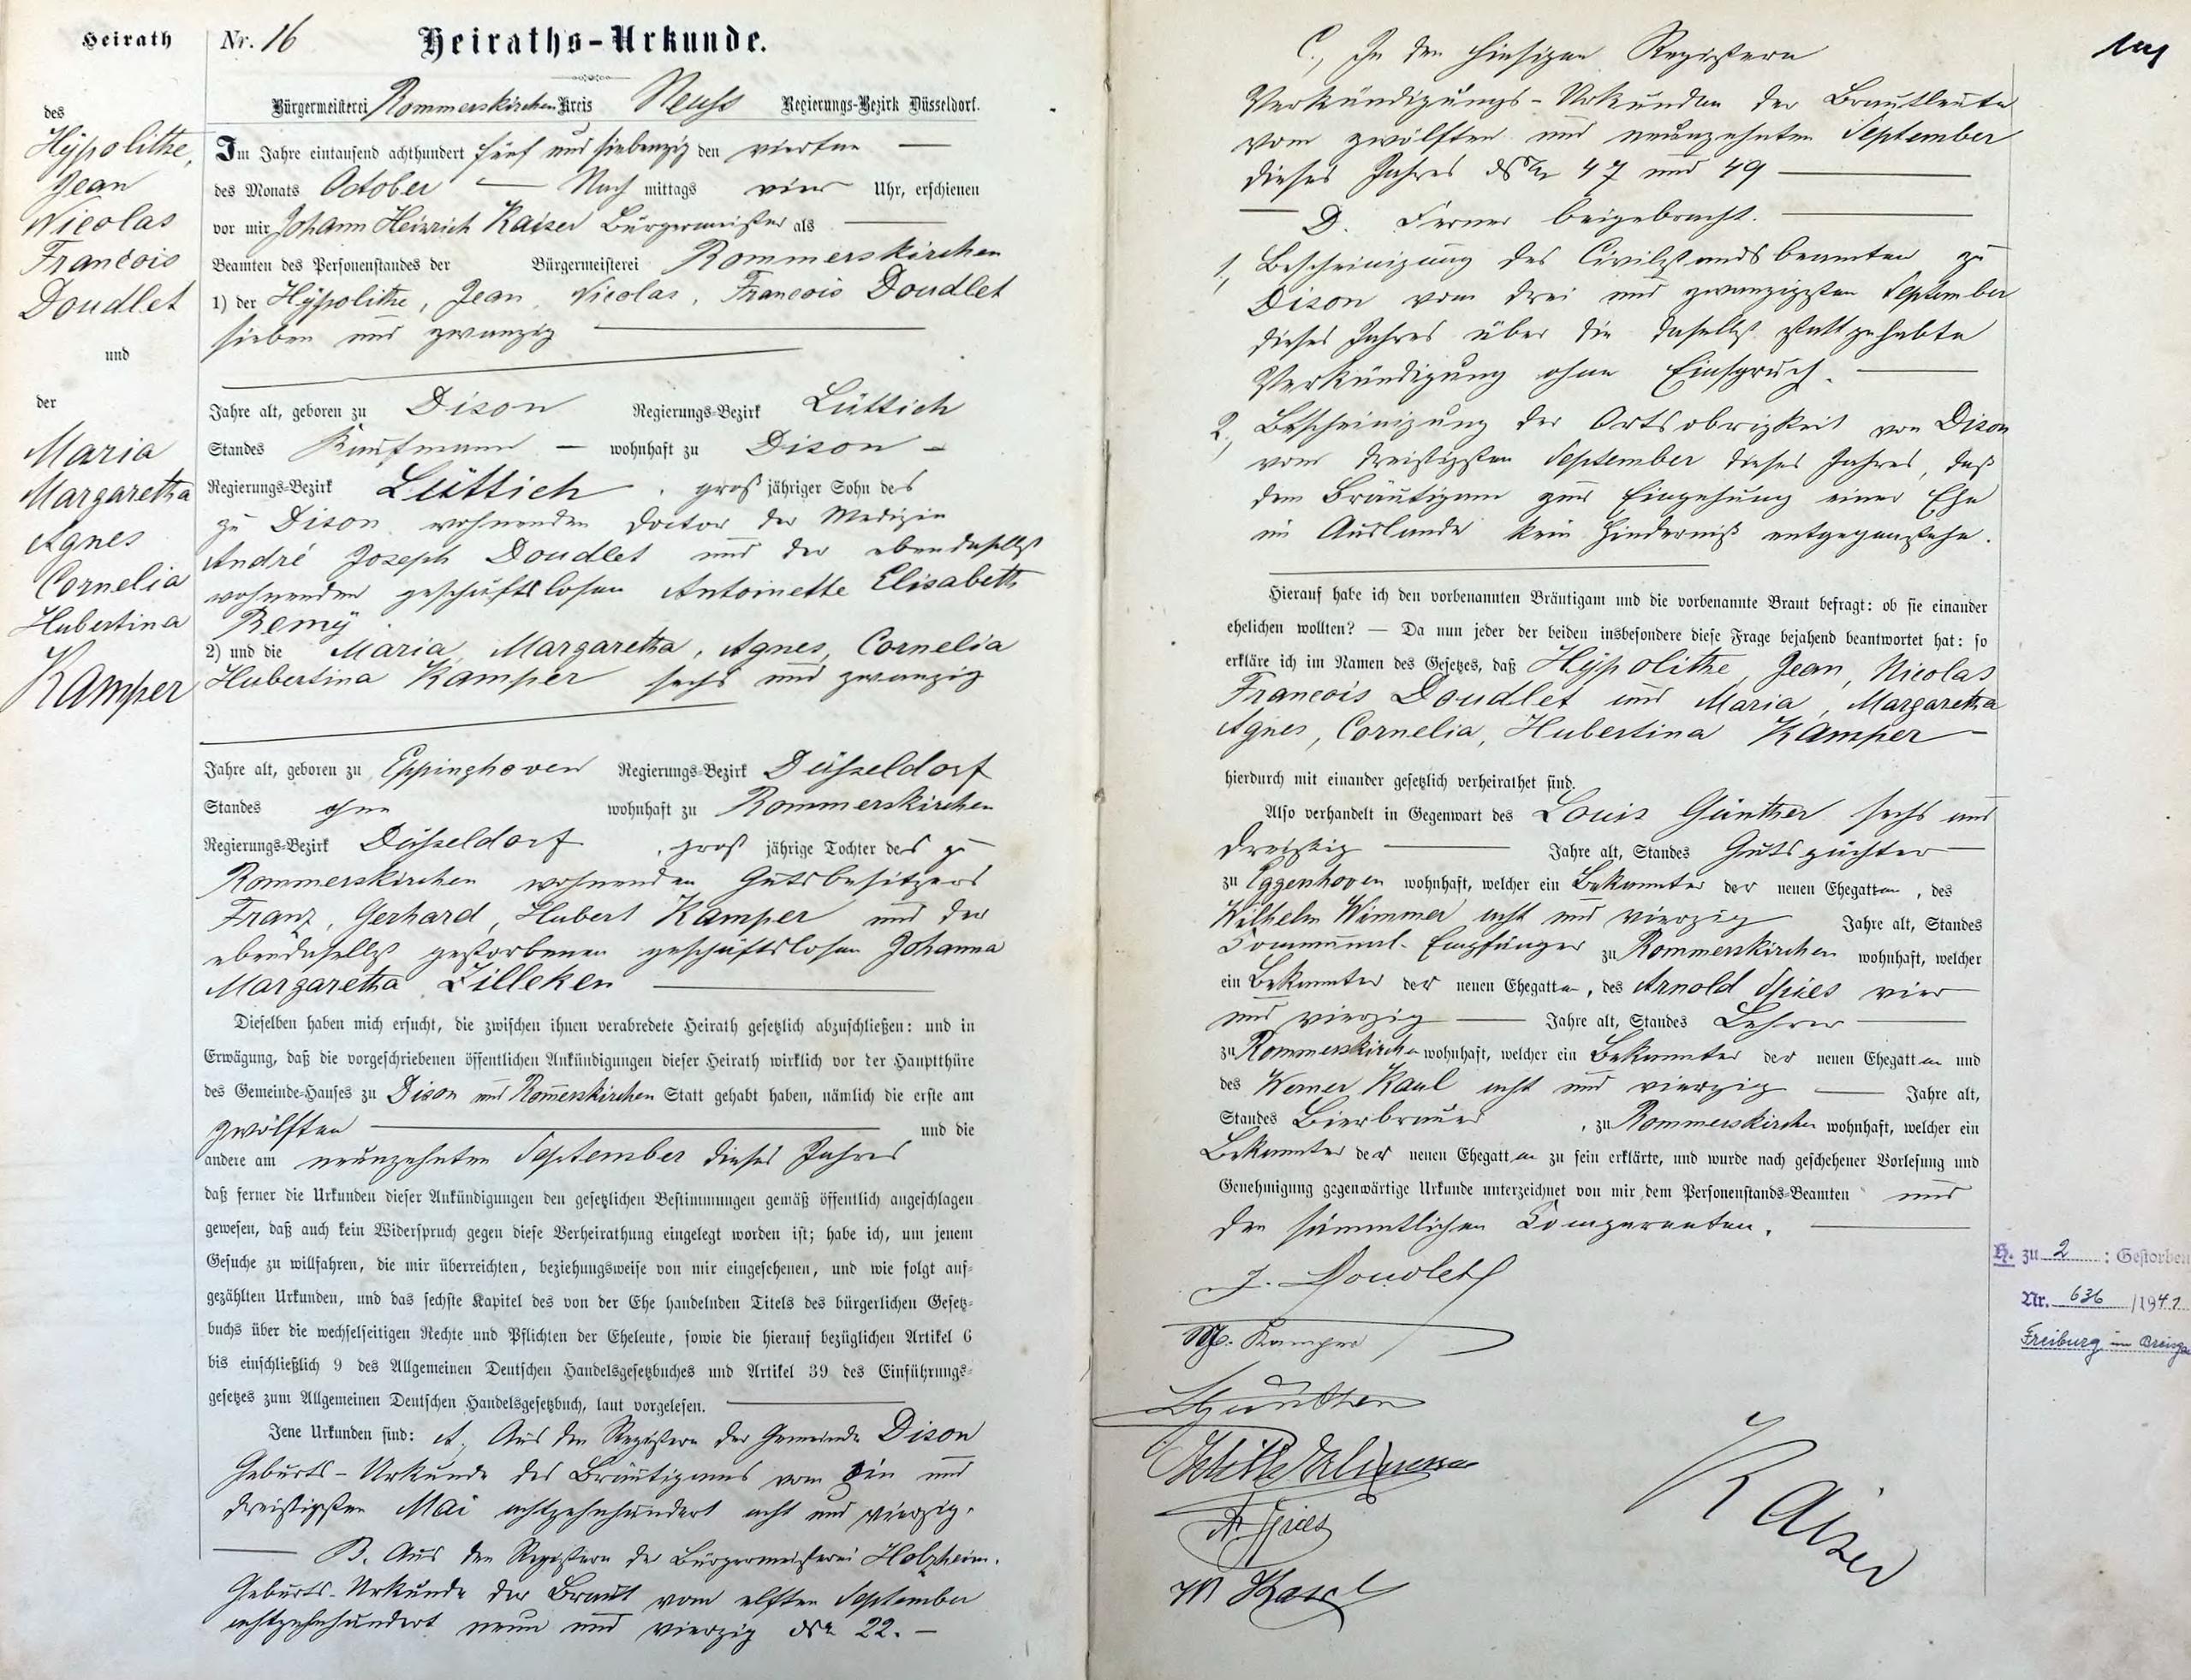 Heirath
des
Hÿpolithe,
Jean
Nicolas
Francois
Doudlet
und
der
Maria
Margaretha
Agnes
Cornelia
Hubertina
Kamper
Nr. 16 Heiraths-Urkunde.
Bürgermeisterei Rommerskirchen Kreis Neuss Regierungs-Bezirk Düsseldorf.
Im Jahre eintausend achthundert fünf und siebenzig den vierten
des Monats October Nach mittags vier Uhr, erschienen
vor mir Johann Heinrich Kaiser Bürgermeister als
Beamten des Personenstandes der Bürgermeisterei Rommerskirchen
1) der Hÿpolithe, Jean, Nicolas, Francois Doudlet
sieben und zwanzig
Jahre alt, geboren zu Dison Regierungs-Bezirk Lüttich
Standes Kaufmann wohnhaft zu Dison
Regierungs-Bezirk Lüttich, groß jähriger Sohn des
zu Dison wohnenden Doctor der Medizin
André Joseph Doudlet und der ebendaselbst
wohnenden geschäftslosen Antoinette Elisabeth
Remÿ
2) und die Maria, Margaretha, Agnes, Cornelia
Hubertina Kamper sechs und zwanzig
Jahre alt, geboren zu Eppinghoven Regierungs-Bezirk Düsseldorf
Standes ohne wohnhaft zu Rommerskirchen
Regierungs-Bezirk Düsseldorf, groß jährige Tochter des zu
Rommerskirchen wohnenden Gutsbesitzers
Franz, Gerhard, Hubert Kamper und der
ebendaselbst gestorbenen geschäftslosen Johanna
Margaretha Zilleken
Dieselben haben mich ersucht, die zwischen ihnen verabredete Heirath gesetzlich abzuschließen: und in
Erwägung, daß die vorgeschriebenen öffentlichen Ankündigungen dieser Heirath wirklich vor der Hauptthüre
des Gemeinde-Hauses zu Dison und Romerskirchen Statt gehabt haben, nämlich die erste am
zwölften und die
andere am neunzehnten September dieses Jahres
daß ferner die Urkunden dieser Ankündigungen den gesetzlichen Bestimmungen gemäß öffentlich angeschlagen
gewesen, daß auch kein Widerspruch gegen diese Verheirathung eingelegt worden ist; habe ich, um jenem
Gesuche zu willfahren, die mir überreichten, beziehungsweise von mir eingesehenen, und wie folgt auf-
gezählten Urkunden, und das sechste Kapitel des von der Ehe handelnden Titels des bürgerlichen Gesetz-
buchs über die wechselseitigen Rechte und Pflichten der Eheleute, sowie die hierauf bezüglichen Artikel 6
bis einschließlich 9 des Allgemeinen Deutschen Handelsgesetzbuches und Artikel 39 des Einführungs-
gesetzes zum Allgemeinen Deutschen Handelsgesetzbuch, laut vorgelesen.
Jene Urkunden sind: A, Aus den Registern der Gemeinde Dison
Geburts-Urkunde des Bräutigams vom ein und
dreißigsten Mai achtzehnhundert acht und vierzig.
B. Aus den Registern der Bürgermeisterei Holzheim.
Geburts-Urkunde der Braut vom elften September
achtzehnhundert neun und vierzig No 22.
C, In den hiesigen Registern
Verkündigungs-Urkunden der Brautleute
vom zwölften und neunzehnten September
dieses Jahres No 47 und 49
D. Ferner beigebracht.
1, Bescheinigung des Civilstandsbeamten zu
Dison vom drei und zwanzigsten September
dieses Jahres über die daselbst stattgehabte
Verkündigung ohne Einspruch.
2, Bescheinigung der Ortsobrigkeit von Dison
vom dreißigsten September dieses Jahres, daß
dem Bräutigam zur Eingehung einer Ehe
im Auslande kein Hinderniß entgegenstehe.
Hierauf habe ich den vorbenannten Bräutigam und die vorbenannte Braut befragt: ob sie einander
ehelichen wollten? — Da nun jeder der beiden insbesondere diese Frage bejahend beantwortet hat: so
erkläre ich im Namen des Gesetzes, daß Hÿpolithe, Jean, Nicolas
Francois Doudlet und Maria, Margaretha
Agnes, Cornelia, Hubertina Kamper
hierdurch mit einander gesetzlich verheirathet sind.
Also verhandelt in Gegenwart des Louis Günther sechs und
dreißig Jahre alt, Standes Gutspächter
zu Eggenhoven wohnhaft, welcher ein Bekannter der neuen Ehegatten, des
Wilhelm Wimmer acht und vierzig Jahre alt, Standes
Communal-Empfänger zu Rommerskirchen wohnhaft, welcher
ein Bekannter der neuen Ehegatten, des Arnold Spies vier
und vierzig Jahre alt, Standes Lehrer
zu Rommerskirchen wohnhaft, welcher ein Bekannter der neuen Ehegatten und
des Werner Kaul acht und vierzig Jahre alt,
Standes Bierbrauer, zu Rommerskirchen wohnhaft, welcher ein
Bekannter der neuen Ehegatten zu sein erklärte, und wurde nach geschehener Vorlesung und
Genehmigung gegenwärtige Urkunde unterzeichnet von mir dem Personenstands-Beamten und
den sämmtlichen Comparenten.
J. Doudlet
M. Kamper
L Günther
A Spies
W Kaul
Kaiser
H. zu 2: Gestorben
Nr. 636 /1941
Freiburg im Breisgau